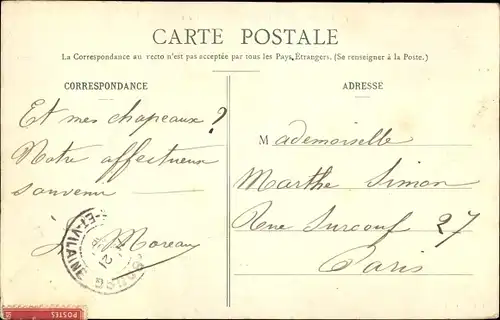 CARTE POSTALE
La Correspondance au recto n'est pas acceptée par tous les Pays Étrangers. (Se renseigner à la Poste.)
CORRESPONDANCE
Et mes chapeaux ?
Notre affectueux
souvenir
J. Moreau
ET-VILAINE
21
POSTES
ADRESSE
Mademoiselle
Marthe Simon
Rue Surcouf 27
Paris